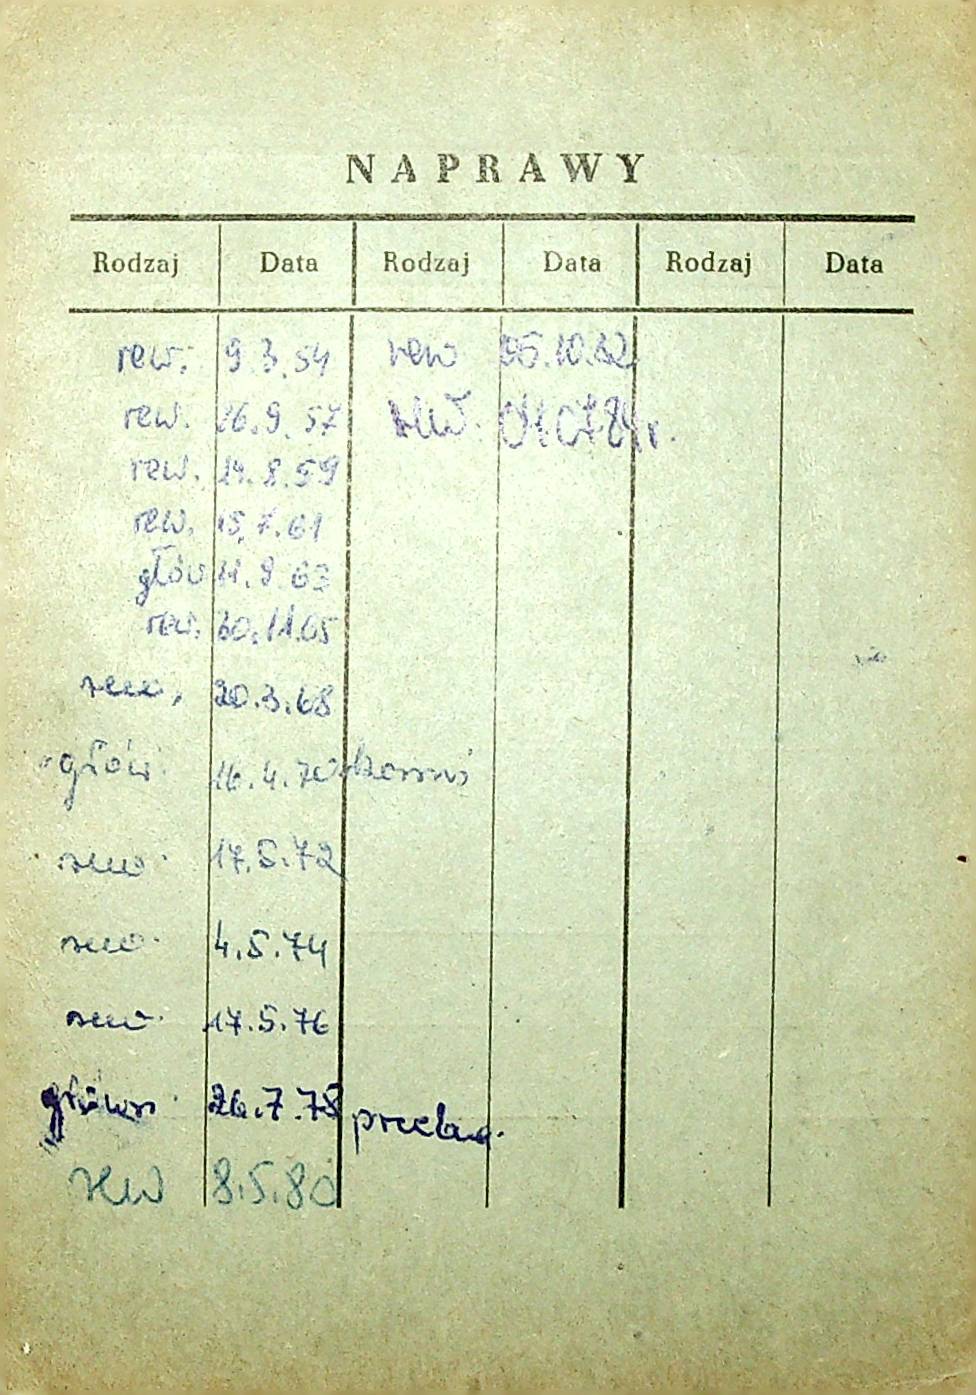 NAPRAWY
Rodzaj Data Rodzaj Data Rodzaj Data
rew. 9.3.54 rew 05.10.82
rew. 26.9.57 rew. 0784r.
rew. 14.8.59
rew. 15.7.61
głów 11.9.63
rew. 30.11.65
rew, 20.3.68
głów. 16.4.70
rew. 17.5.72
rew. 4.5.74
rew. 17.5.76
główn. 26.7.78
rew 8.5.80